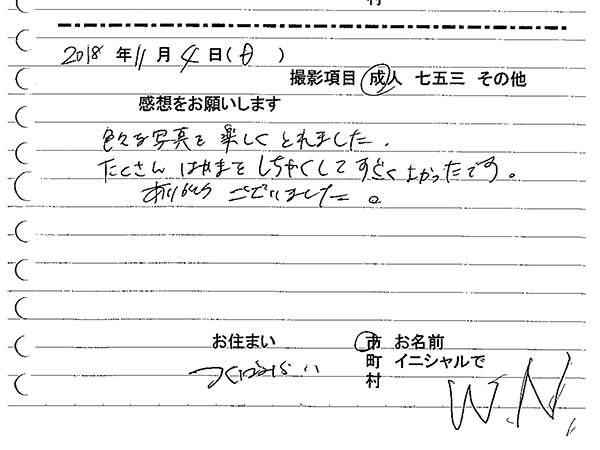 村
2018 年 11 月 4 日(日)
撮影項目 成人 七五三 その他
感想をお願いします
色々な写真を楽しくとれました.
たくさん はかまを しちゃくして すごく よかったです。
ありがとう ございました。
お住まい 市 お名前
町 イニシャルで
村
W.N.